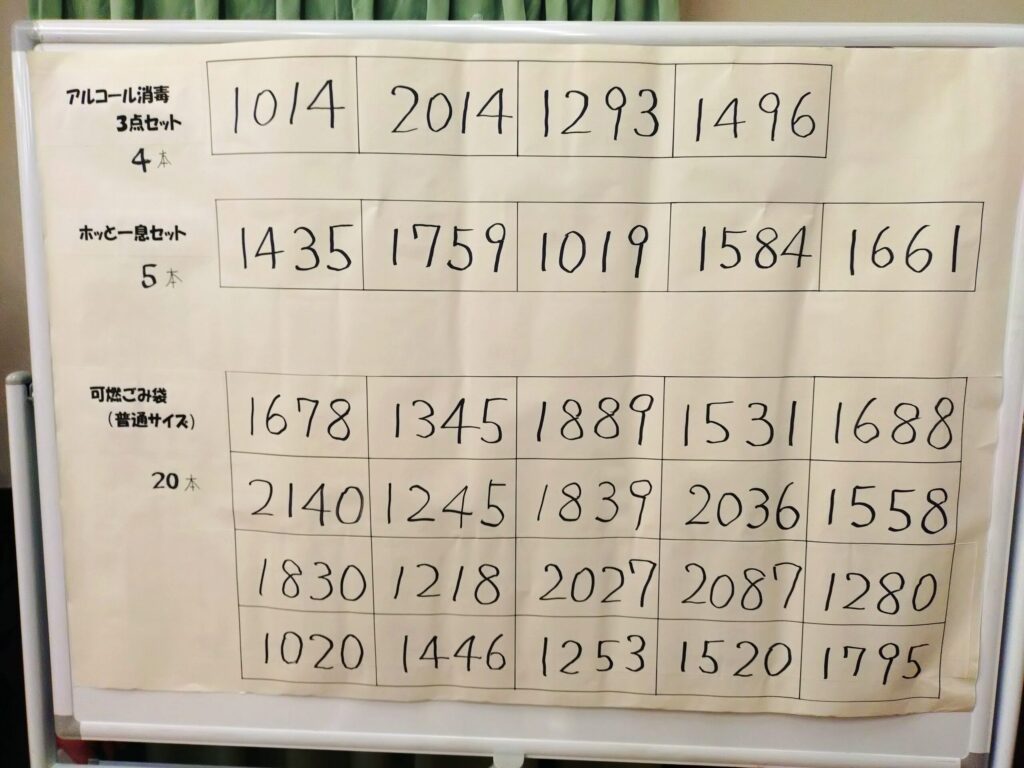 アルコール消毒
3点セット
4本
1014 2014 1293 1496
ホッと一息セット
5本
1435 1759 1019 1584 1661
可燃ごみ袋
(普通サイズ)
20本
1678 1345 1889 1531 1688
2140 1245 1839 2036 1558
1830 1218 2027 2087 1280
1020 1446 1253 1520 1795